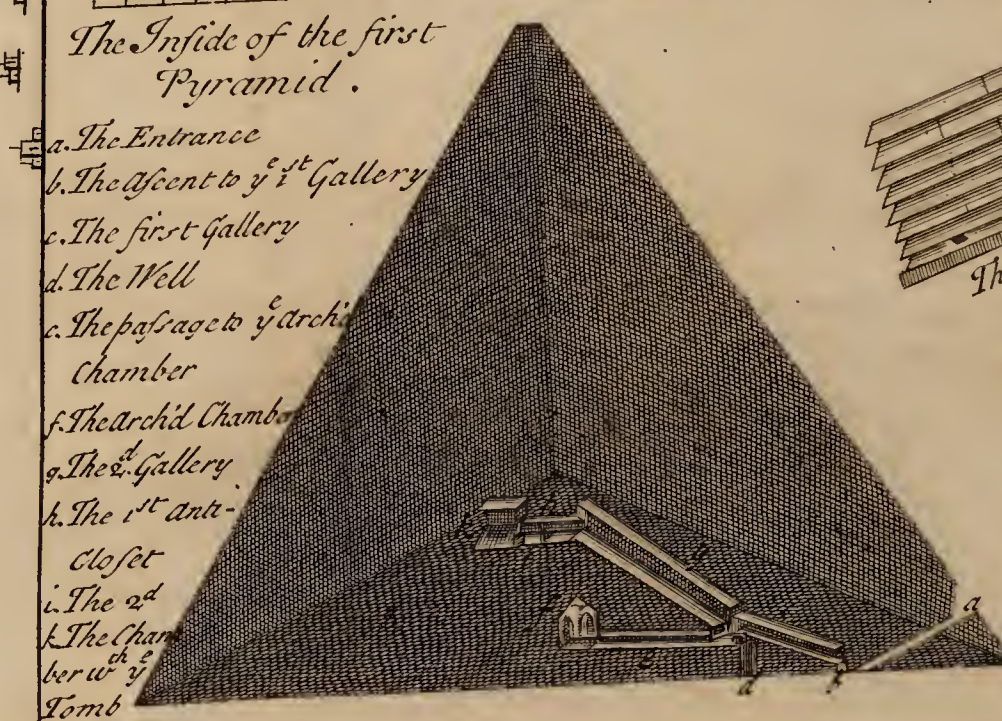 The Inſide of the first
Pyramid.
a. The Entrance
b. The Aſcent to yᵉ 1ˢᵗ Gallery
c. The first Gallery
d. The Well
e. The paſsage to yᵉ Arch'd
Chamber
f. The Arch'd Chamber
g. The 2ᵈ Gallery
h. The 1ˢᵗ Anti-
Cloſet
i. The 2ᵈ
k. The Cham
ber wᵗʰ yᵉ
Tomb
h
g
f
e
d
b
a
Th